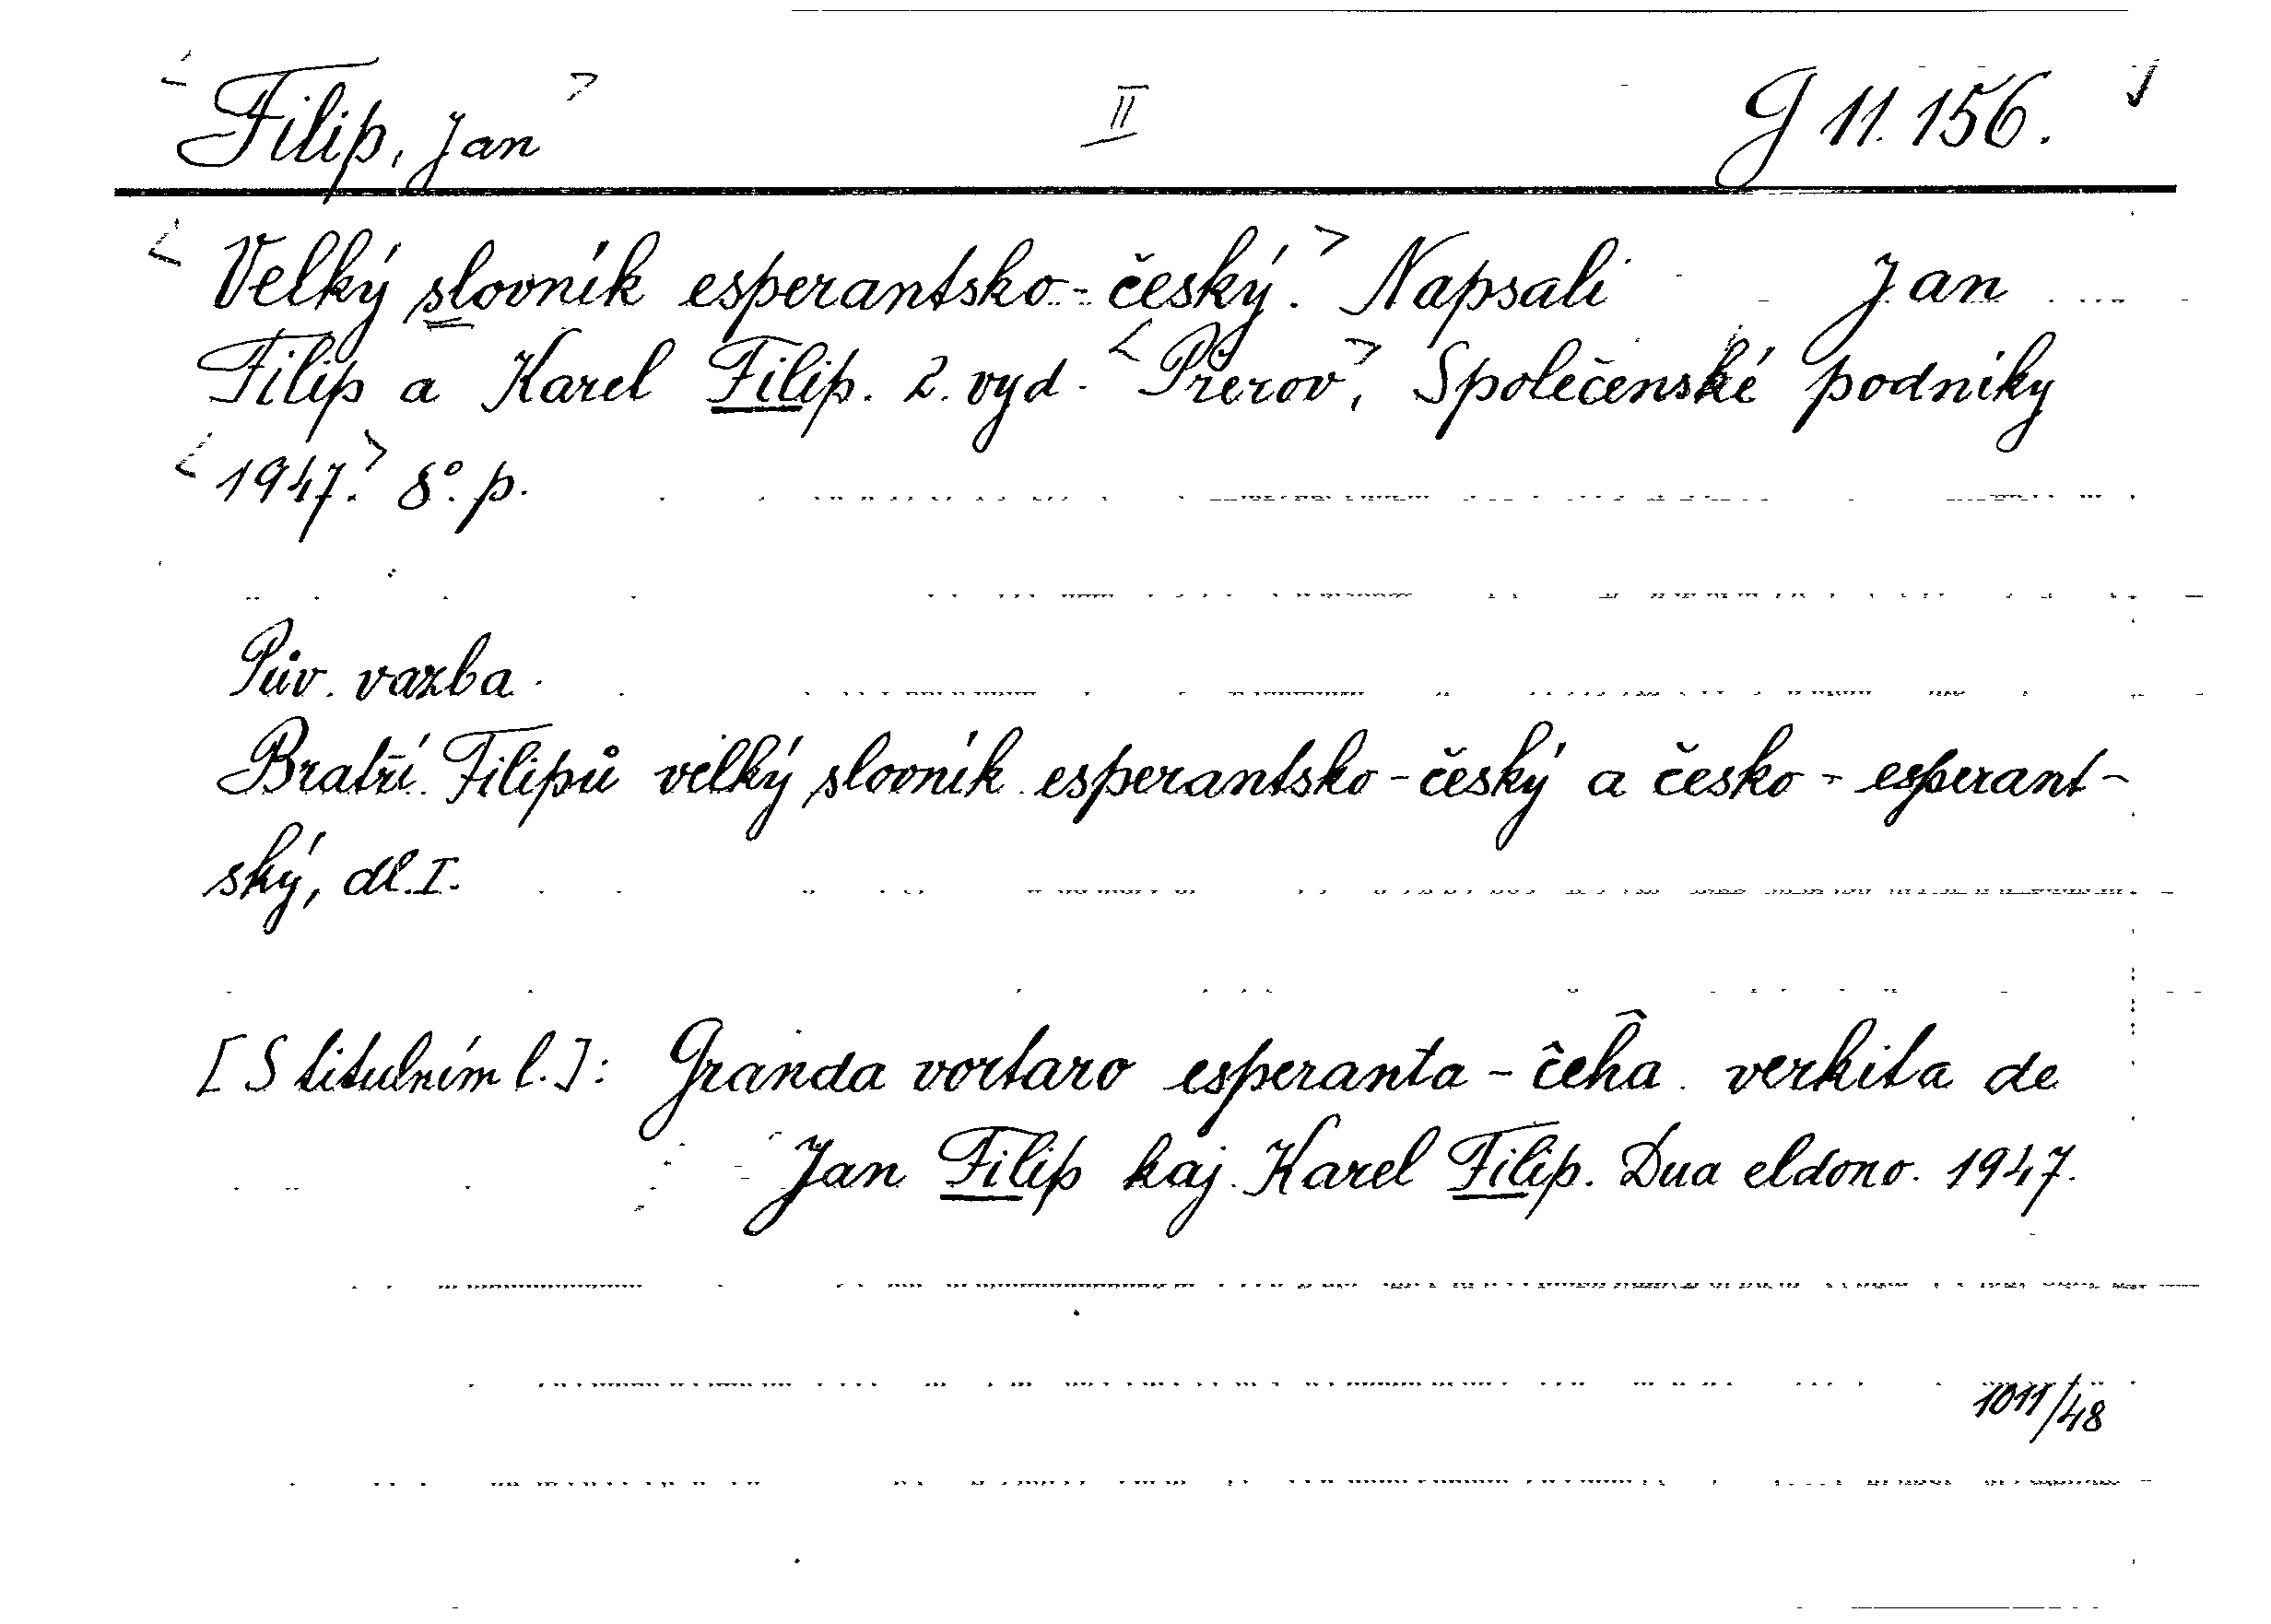 <Filip, Jan> II G 11.156.
<Velký slovník esperantsko-český.> Napsali Jan
Filip a Karel Filip. 2. vyd. <Přerov>, Společenské podniky
<1947.> 8°. p.
Pův. vazba.
Bratří Filipů velký slovník esperantsko-český a česko-esperant-
ský, díl. I.
[S titulním l.]: Granda vortaro esperanta-ĉeĥa verkita de
Jan Filip kaj Karel Filip. Dua eldono. 1947.
1011/48